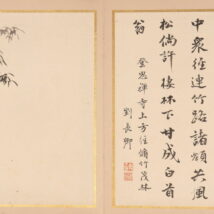 中衆徑連竹路諸嶺共風
松倘許棲林下甘成白首
翁
登思禪寺上方題脩竹茂林
劉長卿